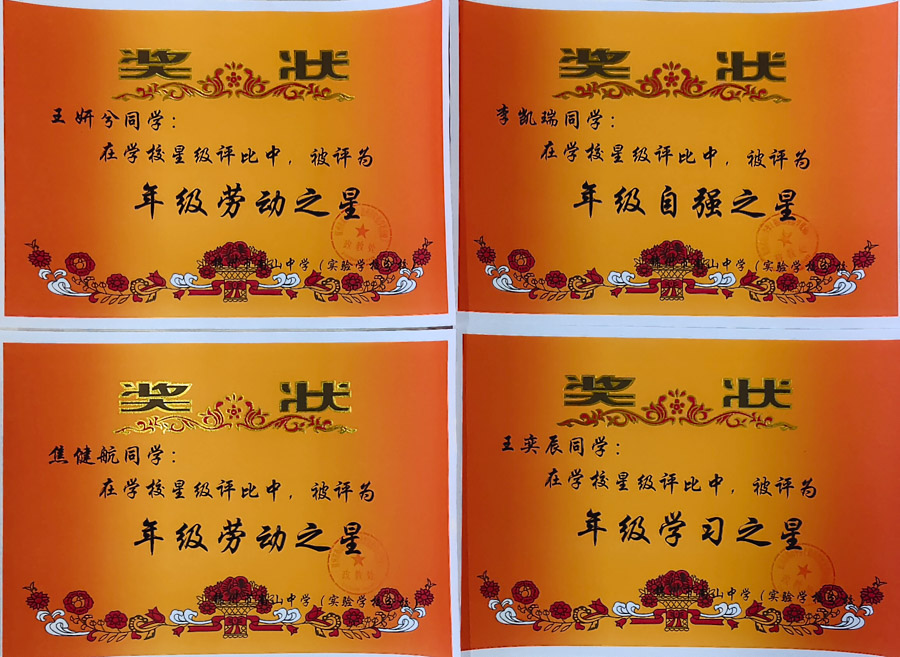 奖 状
王妍兮同学：
在学校星级评比中，被评为
年级劳动之星
政教处
山中学（实验学校
奖 状
李凯瑞同学：
在学校星级评比中，被评为
年级自强之星
山中学（实验学校
奖 状
焦健航同学：
在学校星级评比中，被评为
年级劳动之星
政教处
山中学（实验学校
奖 状
王奕辰同学：
在学校星级评比中，被评为
年级学习之星
政教处
山中学（实验学校